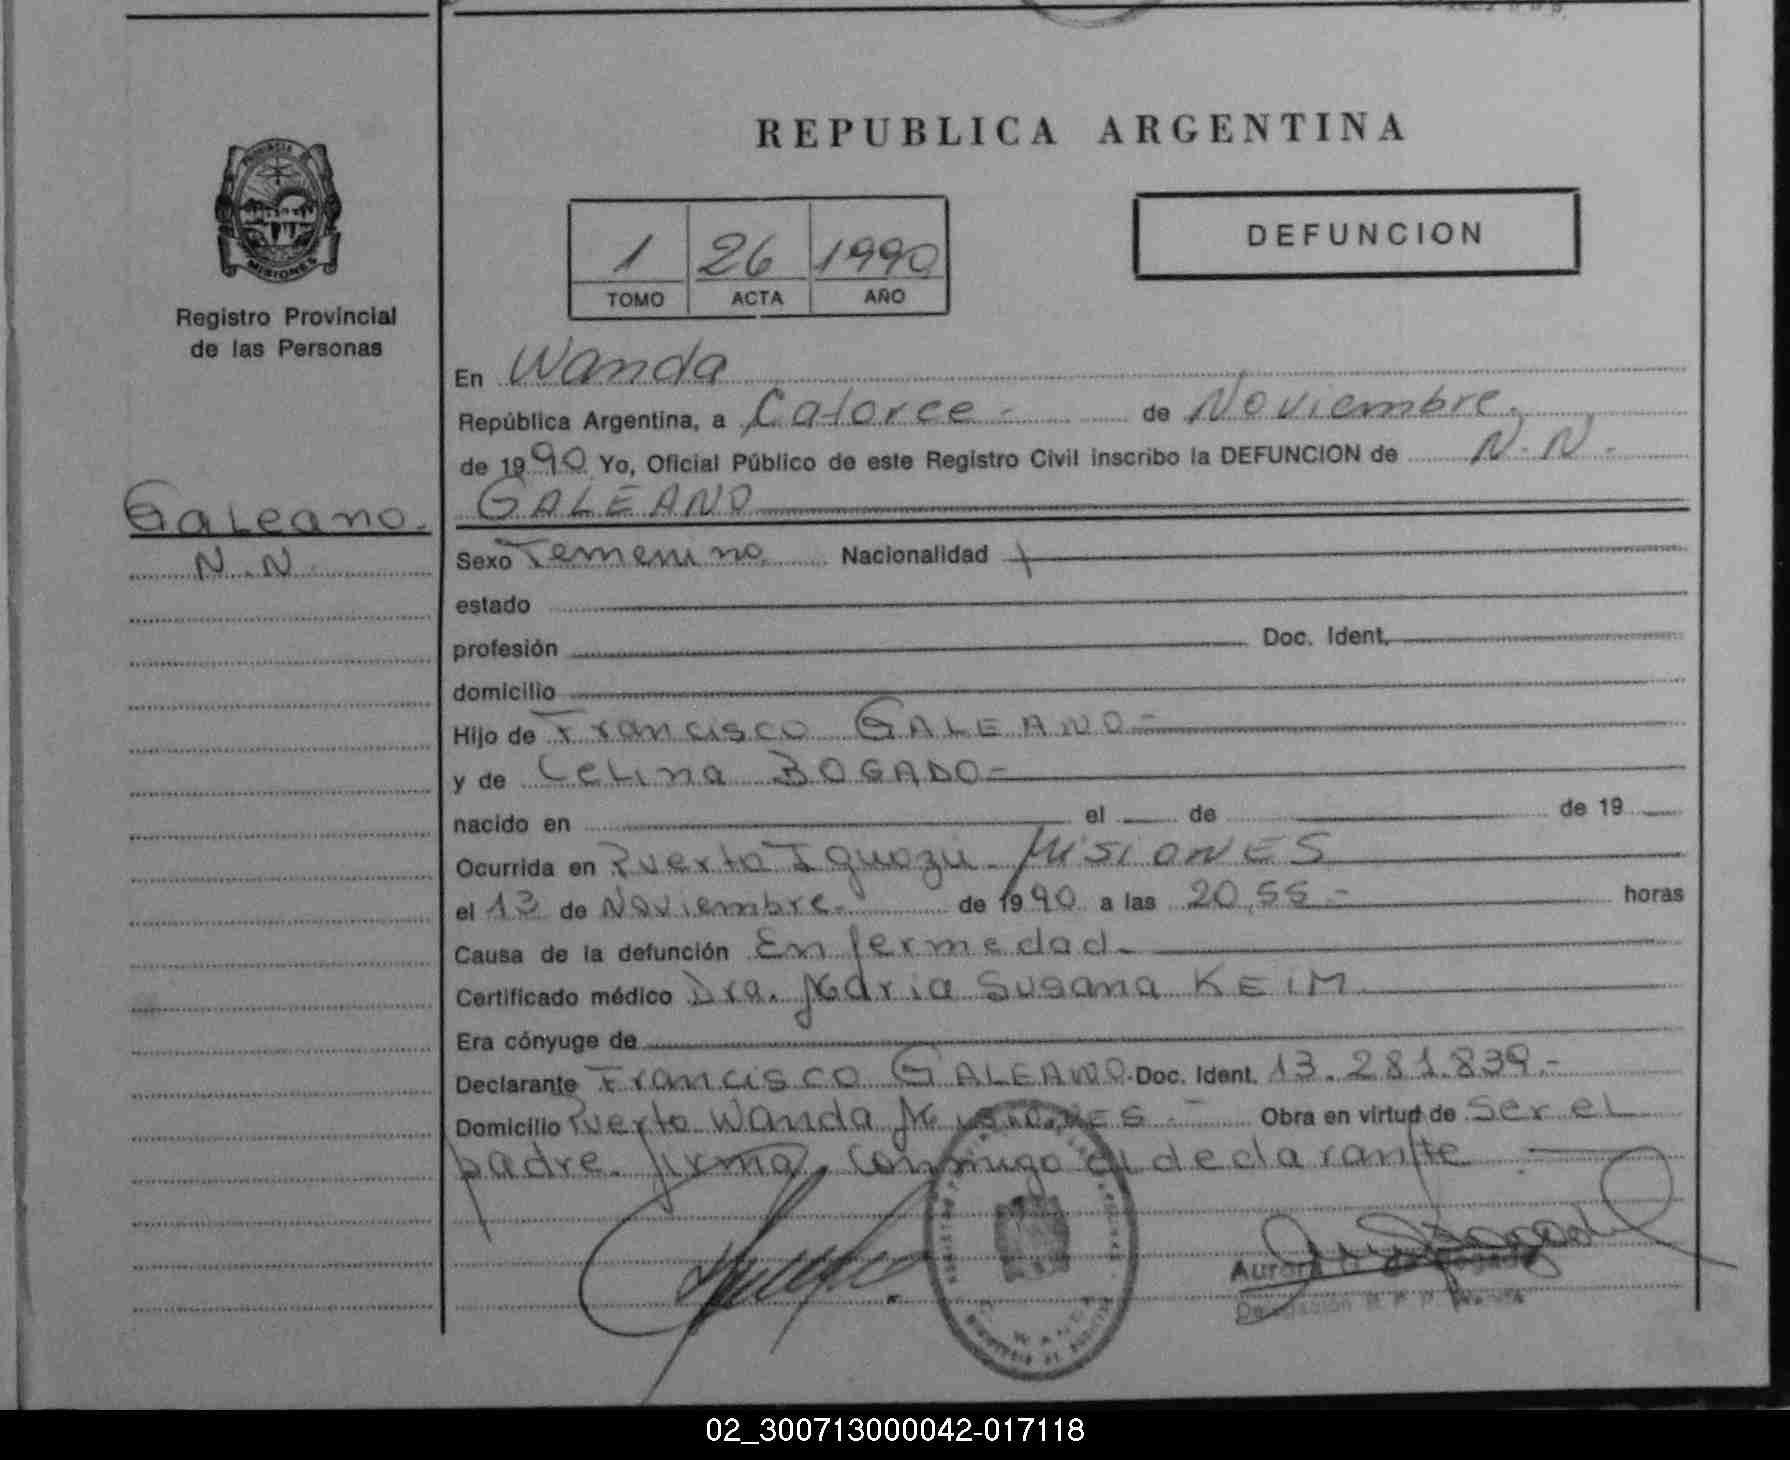 REPUBLICA ARGENTINA
PROVINCIA
MISIONES
Registro Provincial
de las Personas
1 26 1990
TOMO ACTA AÑO
DEFUNCION
Galeano.
N.N.
En Wanda
República Argentina, a Catorce - de Noviembre.
de 1990 Yo, Oficial Público de este Registro Civil inscribo la DEFUNCION de N.N.
GALEANO
Sexo Femenino Nacionalidad
estado
profesión Doc. Ident.
domicilio
Hijo de Francisco GALEANO-
y de Celina BOGADO-
nacido en el de de 19
Ocurrida en Puerto Iguazu - MISIONES
el 13 de Noviembre.- de 1990 a las 20,55.- horas
Causa de la defunción Enfermedad.-
Certificado médico Dra. Maria Susana KEIM
Era cónyuge de
Declarante Francisco GALEANO. Doc. Ident. 13.281.839.-
Domicilio Puerto Wanda MISIONES.- Obra en virtud de ser el
padre. firma conmigo el declarante.
Aurora
Delegación
WANDA
02_300713000042-017118